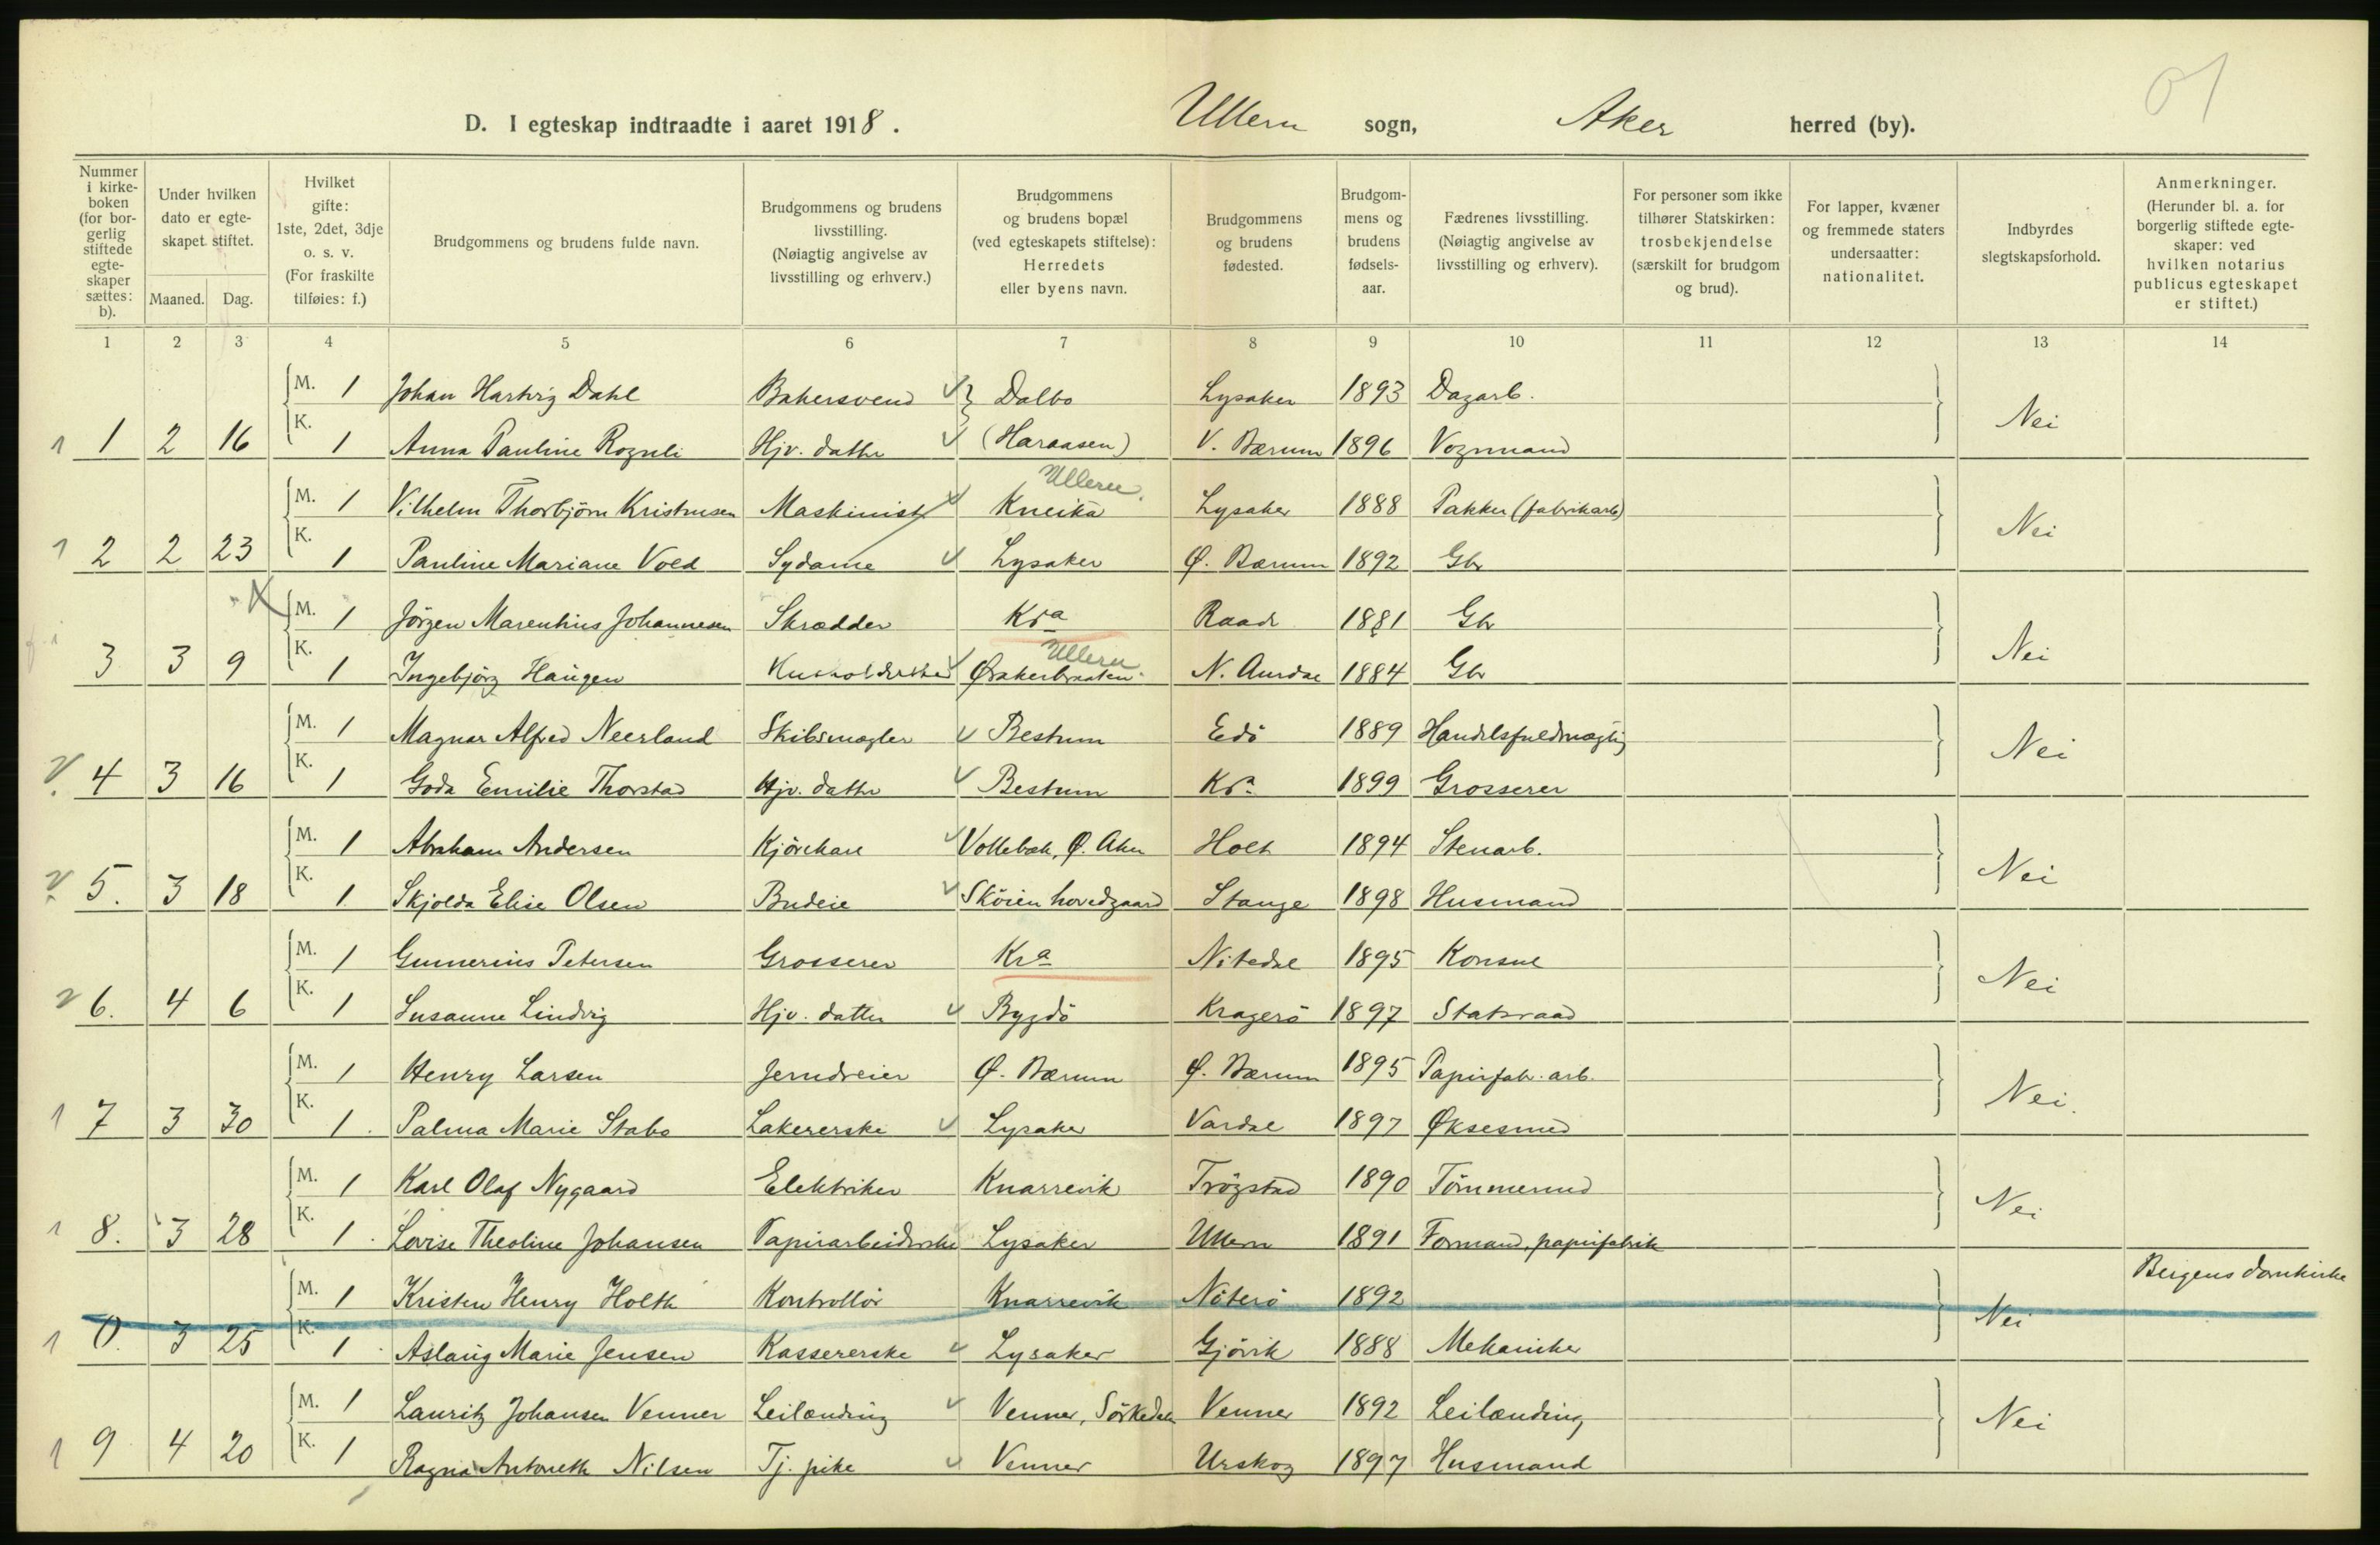 01
D. I egteskap indtraadte i aaret 1918. Ullern sogn, Aker herred (by).
Nummer i kirkeboken (for borgerlig stiftede egteskaper sættes: b).
Under hvilken dato er egteskapet stiftet.
Maaned. Dag.
Hvilket gifte: 1ste, 2det, 3dje o. s. v. (For fraskilte tilføies: f.)
Brudgommens og brudens fulde navn.
Brudgommens og brudens livsstilling. (Nøiagtig angivelse av livsstilling og erhverv.)
Brudgommens og brudens bopæl (ved egteskapets stiftelse): Herredets eller byens navn.
Brudgommens og brudens fødested.
Brudgommens og brudens fødselsaar.
Fædrenes livsstilling. (Nøiagtig angivelse av livsstilling og erhverv).
For personer som ikke tilhører Statskirken: trosbekjendelse (særskilt for brudgom og brud).
For lapper, kvæner og fremmede staters undersaatter: nationalitet.
Indbyrdes slegtskapsforhold.
Anmerkninger. (Herunder bl. a. for borgerlig stiftede egteskaper: ved hvilken notarius publicus egteskapet er stiftet.)
1 2 3 4 5 6 7 8 9 10 11 12 13 14
M. 1 Johan Hartvig Dahl Bakersvend Dalbo Lysaker 1893 Dagarb.
1 1 2 16 K. 1 Anna Pauline Rognli Hjv. datter (Haraasen) V. Bærum 1896 Vognmand Nei
Ullern.
M. 1 Vilhelm Thorbjörn Kristensen Maskinist Kneika Lysaker 1888 Pakker (fabrikarb)
1 2 2 23 K. 1 Pauline Mariane Vold Sydame Lysaker Ø. Bærum 1892 Gbr Nei
M. 1 Jörgen Marenhius Johannesen Skrædder Kra Raade 1881 Gbr
Ullern
3 3 9 K. 1 Ingebjörg Haugen Husholderske Ørakerbraaten N. Aurdal 1884 Gbr Nei
M. 1 Magnar Alfred Neerland Skibsmægler Bestum Edö 1889 Handelsfuldmægtig
4 3 16 K. 1 Goda Emilie Thorstad Hjv. datter Bestum Kra 1899 Grosserer Nei
M. 1 Abraham Andersen Kjörekar Vollebæk, Ø. Aker Holt 1894 Stenarb.
5. 3 18 K. 1 Skjolda Elise Olsen Budeie Sköien hovedgaard Stange 1898 Husmand Nei
M. 1 Gunnerius Petersen Grosserer Kra Nitedal 1895 Konsul
6. 4 6 K. 1 Susanne Lindvig Hjv. datter Bygdö Kragerö 1897 Statsraad Nei
M. 1 Henry Larsen Jerndreier Ø. Bærum Ø. Bærum 1895 Papirfab. arb.
1 7 3 30 K. 1. Palma Marie Stabo Lakererske Lysaker Vardal 1897 Øksesmed Nei.
M. 1 Karl Olaf Nygaard Elektriker Knarrevik Trögstad 1890 Tömmermd
1 8. 3 28 K. 1. Lovise Theoline Johansen Papirarbeiderske Lysaker Ullern 1891 Formand, papirfabrik Nei
M. 1 Kristen Henry Holth Kontrollör Knarrevik Nöterö 1892 Bergens domkirke
1 0. 3 25 K. 1 Aslaug Marie Jensen Kassererske Lysaker Gjövik 1888 Mekaniker Nei
M. 1 Lauritz Johansen Venner Leilænding Venner, Sörkedalen Venner 1892 Leilænding
1 9 4 20 K. 1 Ragna Antoneth Nilsen Tj. pike Venner Urskog 1897 Husmand Nei